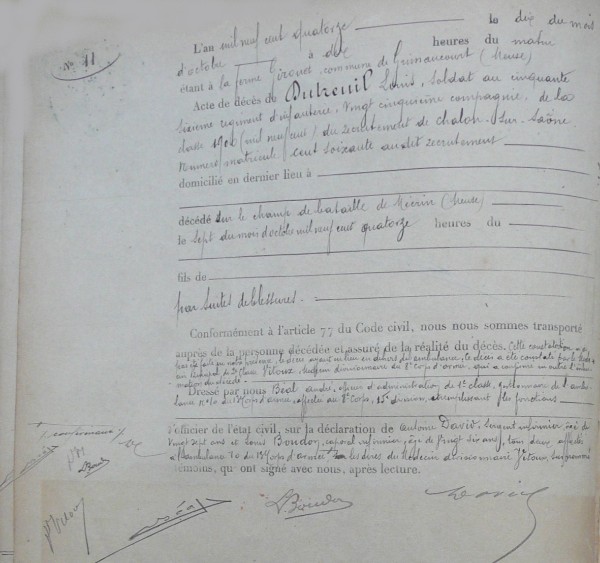 N° 11
L'an mil neuf cent quatorze le dix du mois
d'octobre à dix heures du matin
étant à la ferme commune de (Meuse)
Acte de décès de Dutreuil Louis, soldat au cinquante
sixième régiment d'infanterie, vingt cinquième compagnie, de la
classe 190 (mil neuf cent) du recrutement de Chalon-sur-Saône
Numéro matricule cent soixante au dit recrutement
domicilié en dernier lieu à
décédé sur le champ de bataille de Mécrin (Meuse)
le sept du mois d'octobre mil neuf cent quatorze heures du
fils de
par suites de blessures.
Conformément à l'article 77 du Code civil, nous nous sommes transporté
auprès de la personne décédée et assuré de la réalité du décès. Cette constatation n'a
pas été faite par nous même, le décès ayant eu lieu en dehors de l'ambulance, le décès a été constaté par le
de 2e classe Vitoux, médecin divisionnaire du 8e Corps d'armée, qui a
Dressé par nous Béal André, officier d'administration de 1e classe, gestionnaire de l'ambu-
lance N° 10 du Corps d'armée, affectée au 8e Corps, 15e division, remplissant les fonctions
d'officier de l'état civil, sur la déclaration de Antoine David, sergent infirmier, âgé de
vingt sept ans et Louis Bourdon, caporal infirmier, âgé de vingt six ans, tous deux affectés
à l'ambulance 10 du Corps d'armée les dires du Médecin divisionnaire Vitoux,
témoins, qui ont signé avec nous, après lecture.
Vitoux
Béal
David